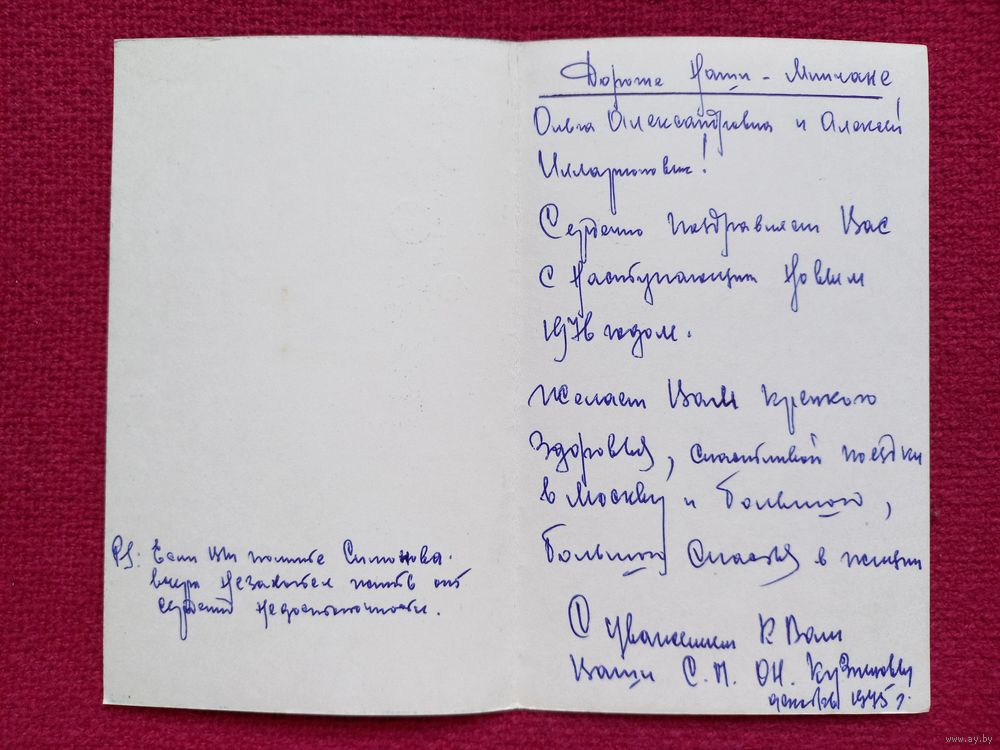 Дорогие Наши - Минчане,
Ольга Александровна и Алексей
Илларионович!
Сердечно поздравляем Вас
с Наступающим Новым
1976 годом.
Желаем Вам крепкого
здоровья, счастливой поездки
в Москву и большого,
большого счастья в жизни
С уважением к Вам
Ваши С.П. О.Н. Кузнецовы
декабрь 1975 г.
PS: Если Вы помните Симонова.
вчера от
сердечной недостаточности.
www.ay.by